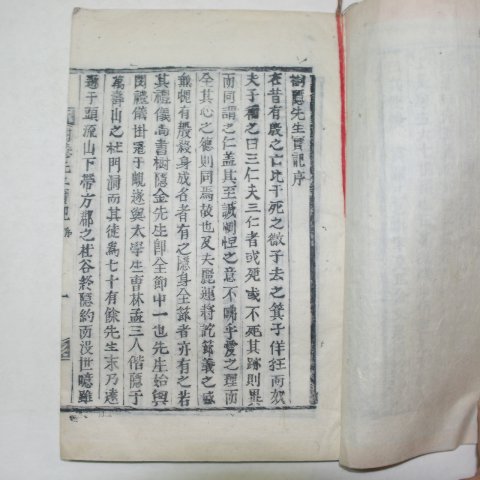 樹隱先生實記序
在昔有殷之亡比干死之微子去之箕子佯狂而奴
夫子稱之曰三仁夫三仁者或死或不死其跡則異
而同謂之仁盖其至誠惻怛之意不咈乎愛之理而
全其心之德則同焉故也及夫麗運將訖節義之盛
無愧有殷殺身成名者有之隱身全節者亦有之若
其禮儀尙書樹隱金先生卽全節中一也先生始與
閔禮儀掛冠于峴遂與太學生曺林孟三人偕隱于
萬壽山之杜門洞而其徒爲七十有餘先生末乃遠
遯于頭流山下帶方郡之杜谷終隱約而沒世噫雖
先生實記 序 一